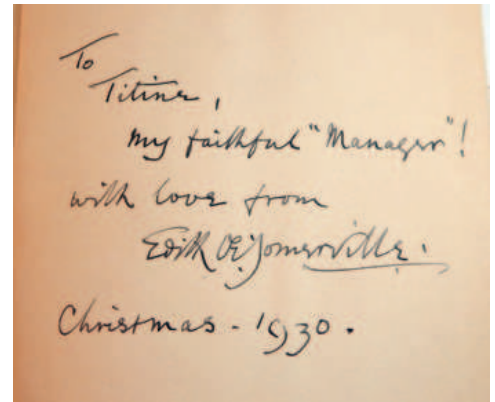 To
Titine,
my faithful "Manager"!
with love from
Edith Œ Somerville.
Christmas - 1930.